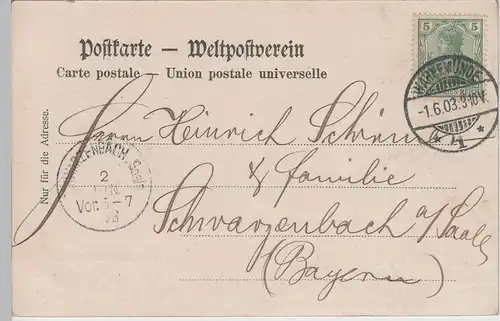 Postkarte — Weltpostverein
Carte postale — Union postale universelle
5 5
-1.6.03.3-10V.
* 4 *
Nur für die Adresse.
Herrn Heinrich
& Familie
Schwarzenbach a/Saale
(Bayern)
2
JUN.
Vor. 6-7
03